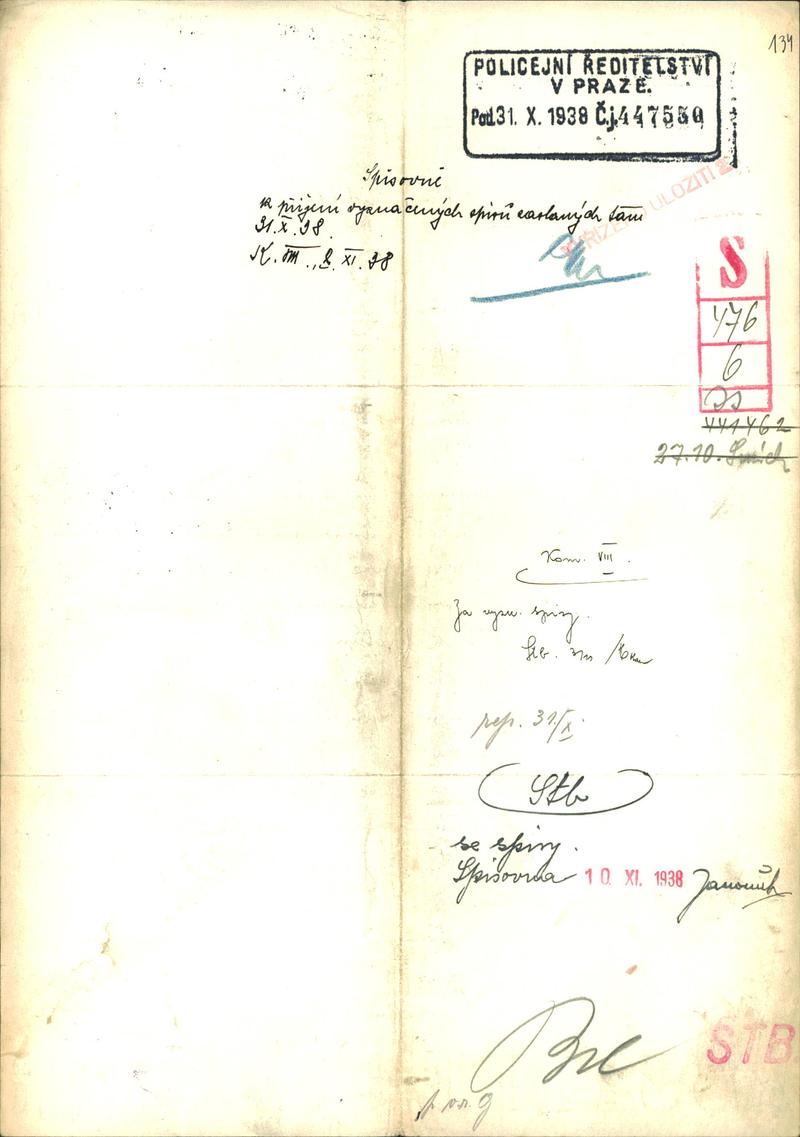 134
POLICEJNÍ ŘEDITELSTVÍ
V PRAZE.
Pod. 31. X. 1938 Č.j. 447550
Spisovně
k připení vyznačených spisů zaslaných tam
31.X.38.
K. VIII., XI. 38
ULOŽITI
S
476
6
441462
27.10. Smích
Kom. VIII.
Za spisy.
rep. 31/X.
Stb
se spisy.
Spisovna 10. XI. 1938
STB